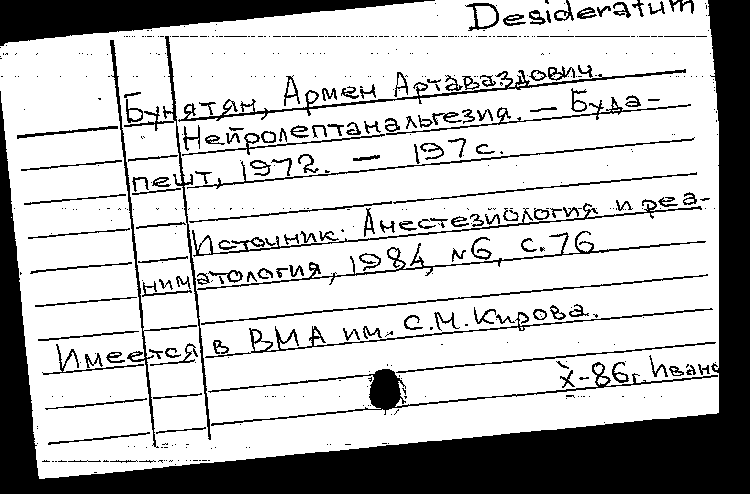 Desideratum
Бунятян, Армен Артаваздович.
Нейролептанальгезия. — Буда-
пешт, 1972. — 197 с.
Источник: Анестезиология и реа-
ниматология, 1984, №6, с. 76
Имеется в ВМА им. С.М. Кирова.
X-86г. Ивано